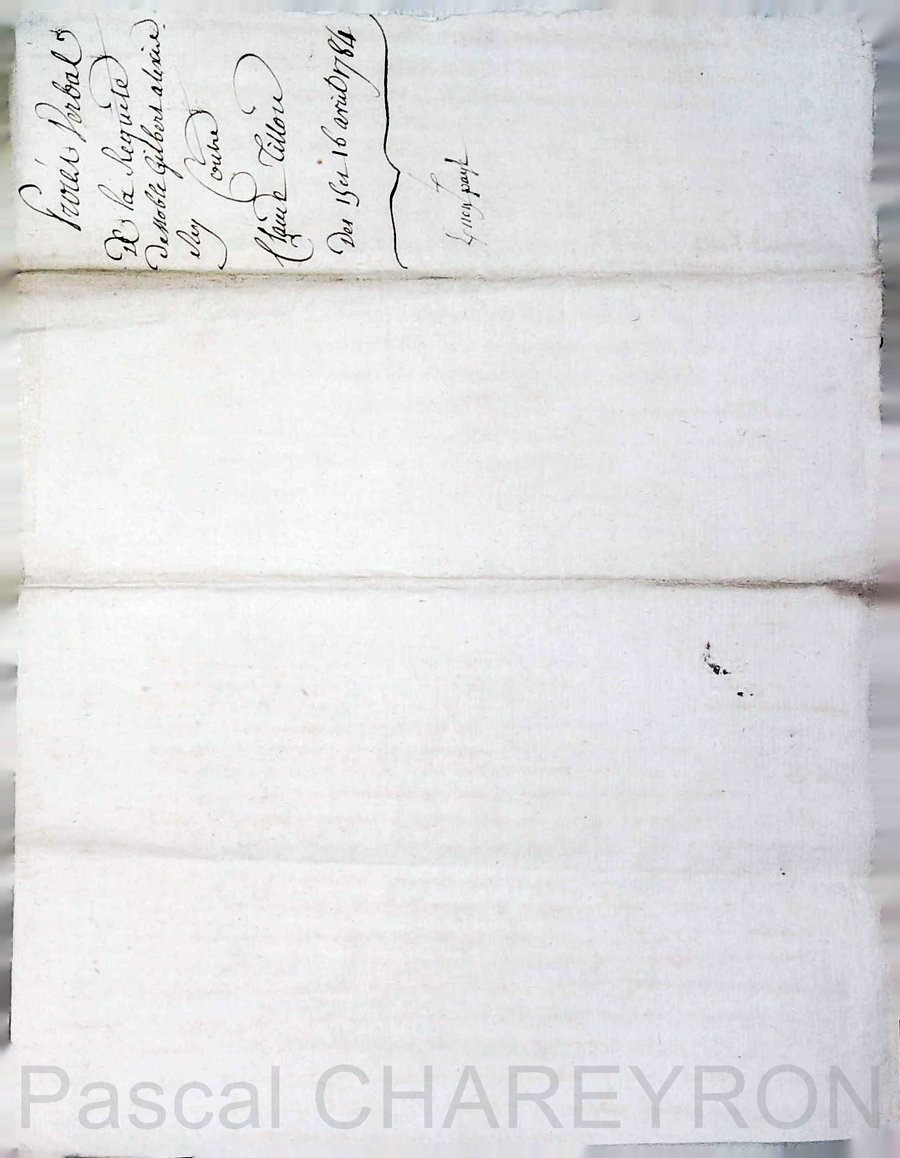 Procés Verbal
De la Requete
De Noble Gilbert alexis
Contre
Claude Tillon
Des 15 et 16 avril 1784
payé
Pascal CHAREYRON